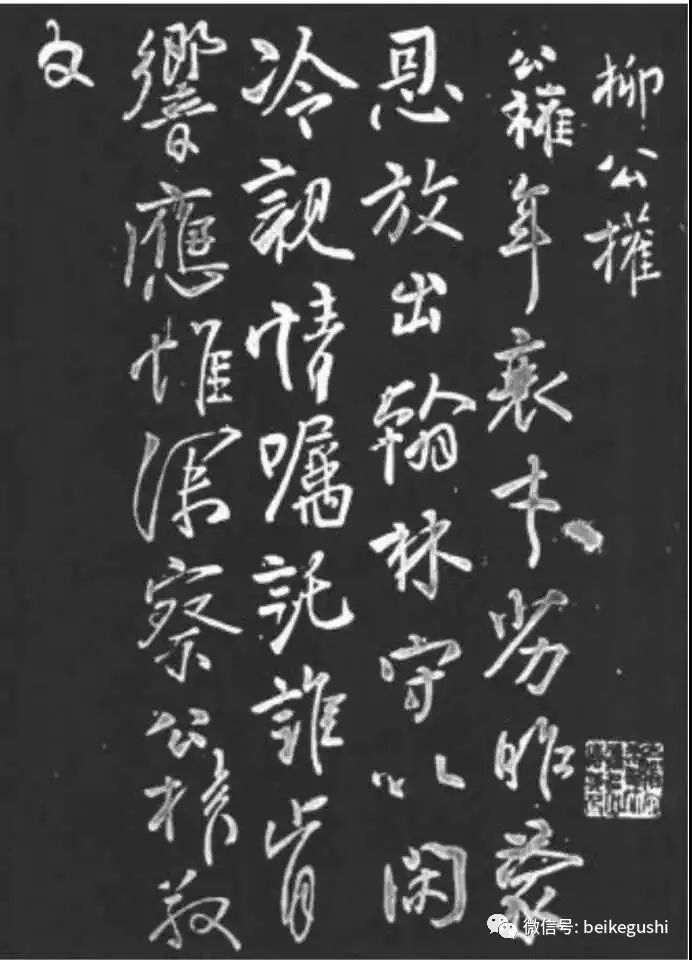 柳公權
公權年衰才劣昨蒙
恩放出翰林守以閑
冷親情嘱託誰肯
響應惟深察公權敬
白
微信号: beikegushi